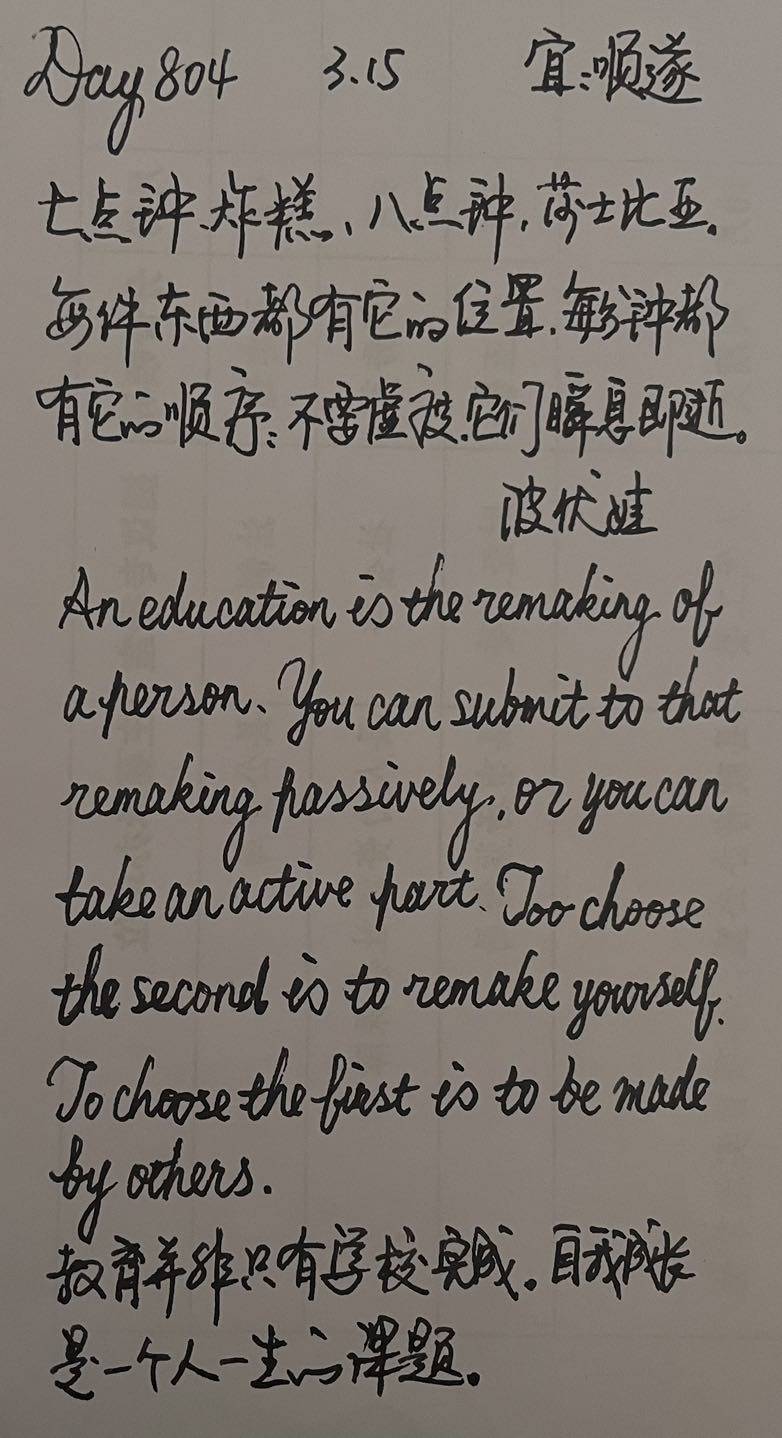 Day 804 3.15 宜:顺遂
七点钟、炸糕、八点钟,莎士比亚.
每件东西都有它的位置.每分钟都
有它的顺序:不要虚度.它们瞬息即逝。
波伏娃
An education is the remaking of
a person. You can submit to that
remaking passively, or you can
take an active part. Too choose
the second is to remake yourself.
To choose the first is to be made
by others.
教育并非只有学校完成。自我成长
是一个人一生的课题。